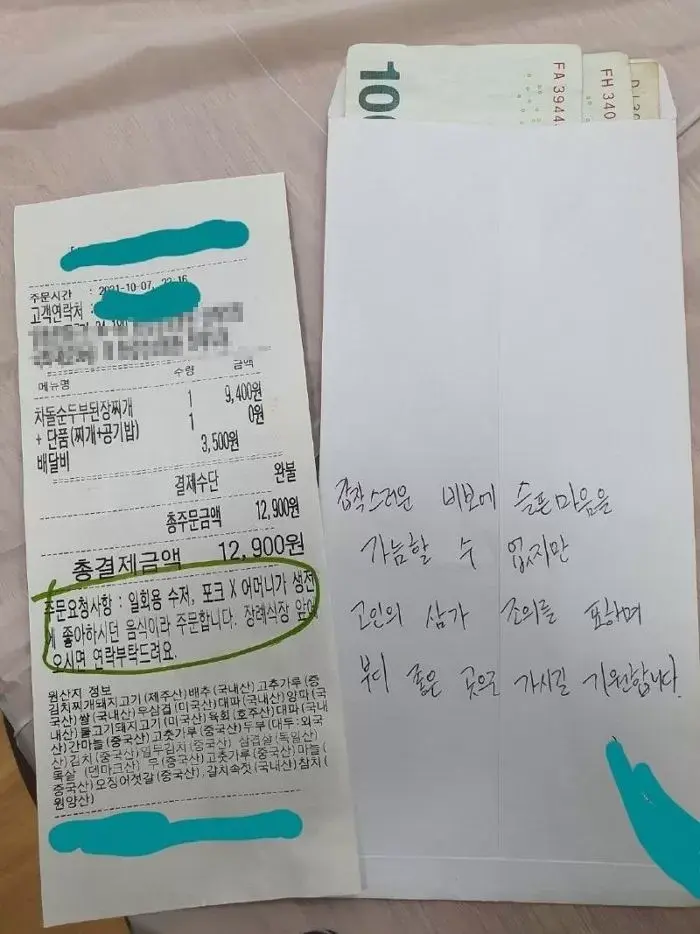 주문시간 : 2021-10-07, 22:16
고객연락처 :
메뉴명 수량 금액
차돌순두부된장찌개 1 9,400원
+ 단품(찌개+공기밥) 1 0원
배달비 3,500원
결제수단 완불
총주문금액 12,900원
총결제금액 12,900원
주문요청사항 : 일회용 수저, 포크 X 어머니가 생전
에 좋아하시던 음식이라 주문합니다. 장례식장 앞에
오시면 연락부탁드려요.
원산지 정보
김치찌개돼지고기(제주산) 배추(국내산) 고추가루(중
국산) 쌀(국내산) 우삼겹(미국산) 대파(국내산) 양파(국
내산) 불고기돼지고기(미국산) 육회(호주산) 대파(국내
산) 간마늘(중국산) 고춧가루(중국산) 두부(대두:외국
산) 김치(중국산) 열무김치(중국산) 삼겹살(독일산)
목살 (덴마크산) 무(중국산) 고춧가루(중국산) 마늘(
중국산) 오징어젓갈(중국산), 갈치속젓(국내산) 참치(
원양산)
100
FA3944
FH340
갑작스러운 비보에 슬픈마음을
가늠할 수 없지만
고인의 삼가 조의를 표하며
부디 좋은 곳으로 가시길 기원합니다.